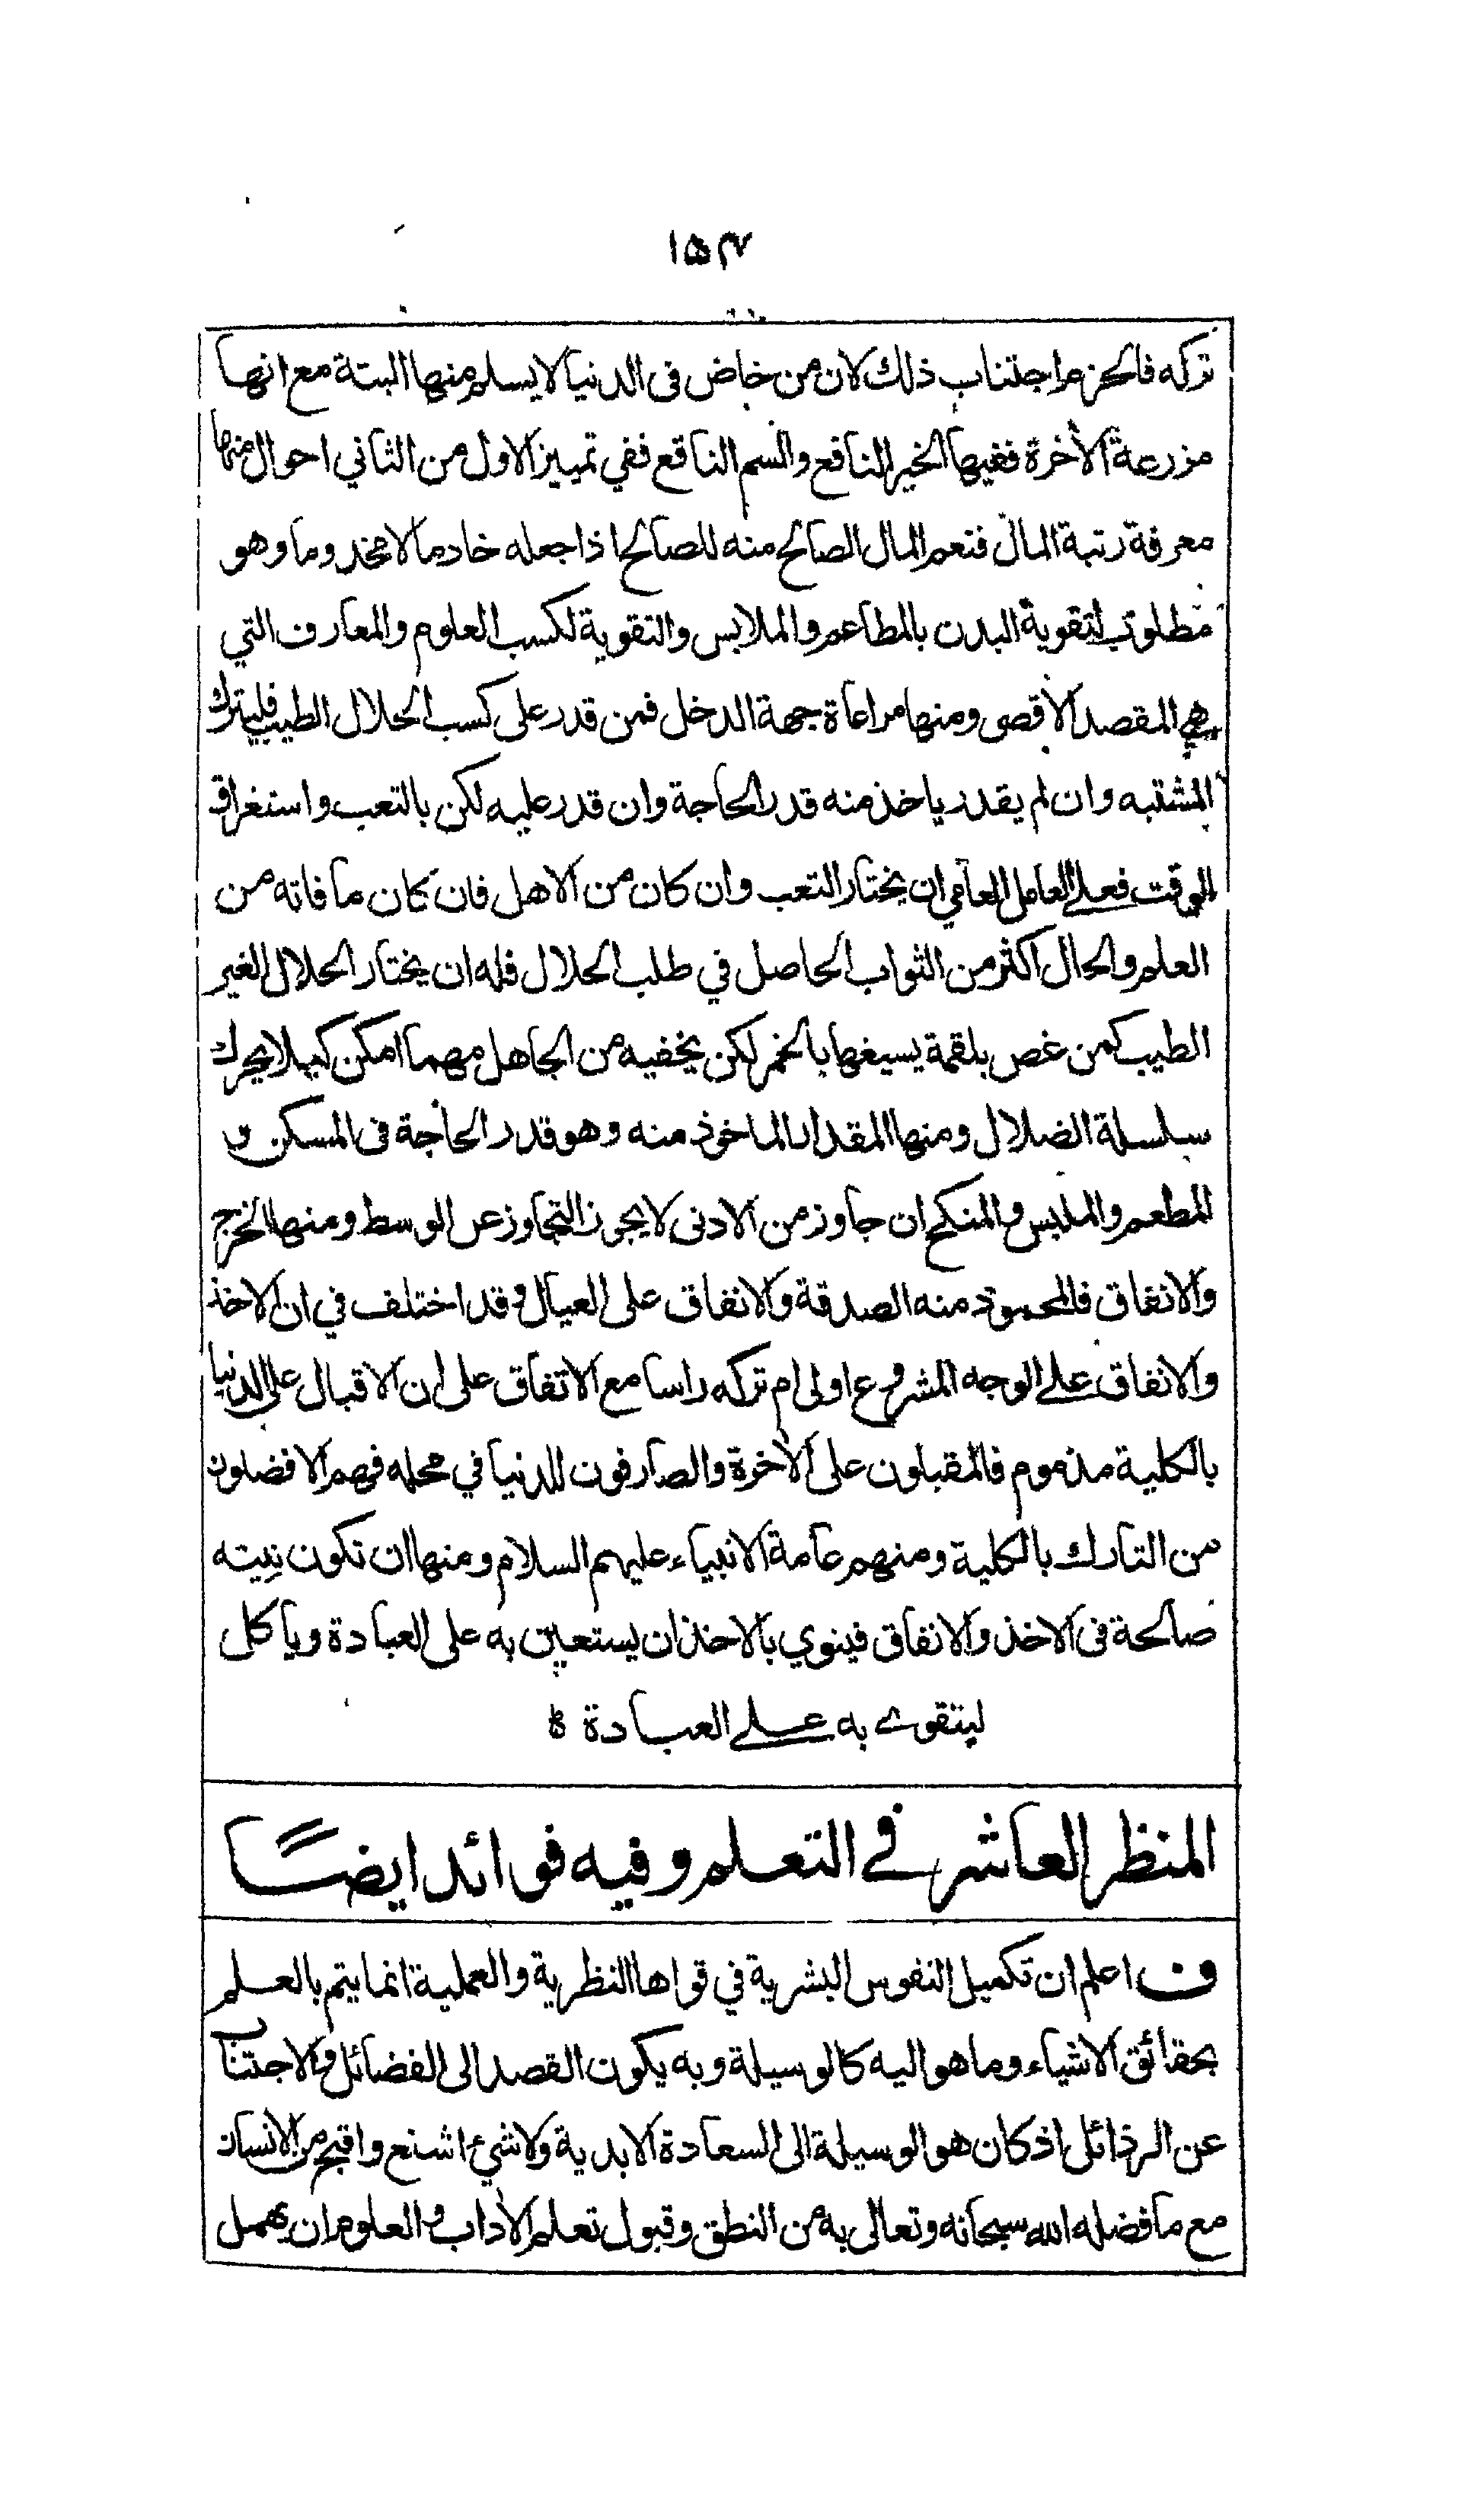 ١٥٣
تركه فالحزم اجتناب ذلك لان من خاض فى الدنيا لا يسلم منها البتة مع انها
مزرعة الأخرة ففيها الخير النافع والسم الناقع ففي تمييز الاول من الثاني احوال منها
معرفة رتبة المال فنعم المال الصالح منه للصالح اذا جعله خادما لا مخدوما وهو
مطلوب لتقوية البدن بالمطاعم والملابس والتقوية لكسب العلوم والمعارف التي
هي المقصد الاقصى ومنها مراعاة جهة الدخل فمن قدر على كسب الحلال الطيب فليترك
المشتبه وان لم يقدر ياخذ منه قدر الحاجة وان قدر عليه لكن بالتعب واستغراق
الوقت فعلى العامل العامي ان يختار التعب وان كان من الاهل فان كان ما فاته من
العلم والحال اكثر من الثواب الحاصل في طلب الحلال فله ان يختار الحلال الغير
الطيب كمن غص بلقمة يسيغها بالخمر لكن يخفيه من الجاهل مهما امكن كيلا يحرك
سلسلة الضلال ومنها المقدار الماخوذ منه وهو قدر الحاجة فى المسكن و
المطعم والملبس والمنكح ان جاوز من الادنى لا يجوز التجاوز عن الوسط ومنها الخرج
والانفاق فالمحمود منه الصدقة والانفاق على العيال وقد اختلف في ان الاخذ
والانفاق على الوجه المشروع اولى ام تركه راسا مع الاتفاق على ان الاقبال على الدنيا
بالكلية مذموم فالمقبلون على الأخرة والصارفون للدنيا في محله فهم الافضلون
من التارك بالكلية ومنهم عامة الانبياء عليهم السلام ومنها ان تكون نيته
صالحة فى الاخذ والانفاق فينوي بالاخذ ان يستعين به على العبادة وياكل
ليتقوى به على العبادة
المنظر العاشر في التعلم وفيه فوائد ايضًا
ف اعلم ان تكميل النفوس البشرية في قواها النظرية والعملية انما يتم بالعلم
بحقائق الاشياء وما هو اليه كالوسيلة وبه يكون القصد الى الفضائل والاجتناب
عن الرذائل اذ كان هو الوسيلة الى السعادة الابدية ولا شيء اشنع واقبح من الانسان
مع ما فضله الله سبحانه وتعالى به من النطق وقبول تعلم الأداب والعلوم ان يهمل